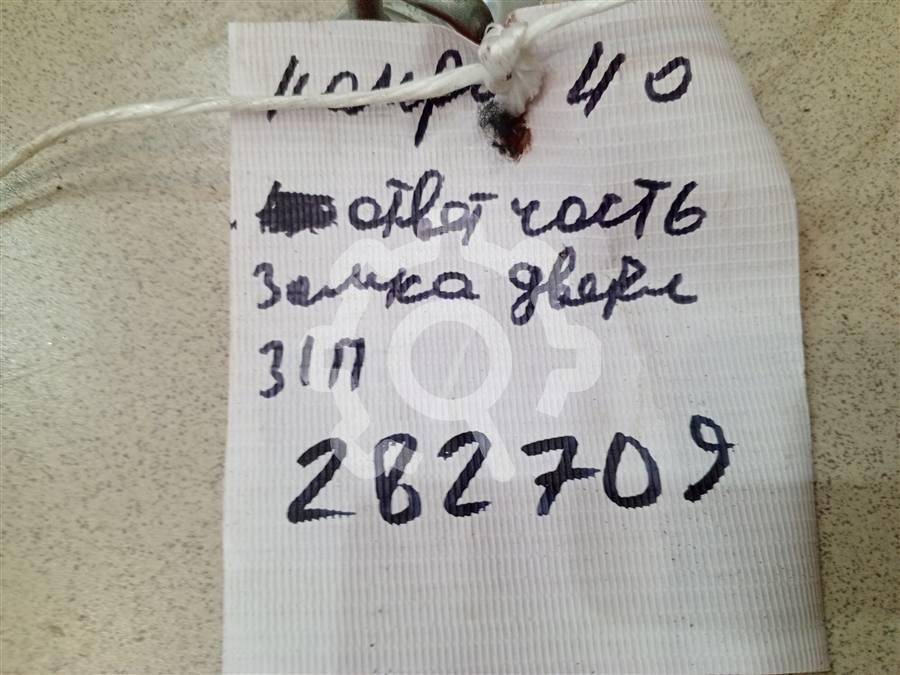 камри 40
ответ часть
замка двери
З/П
282709